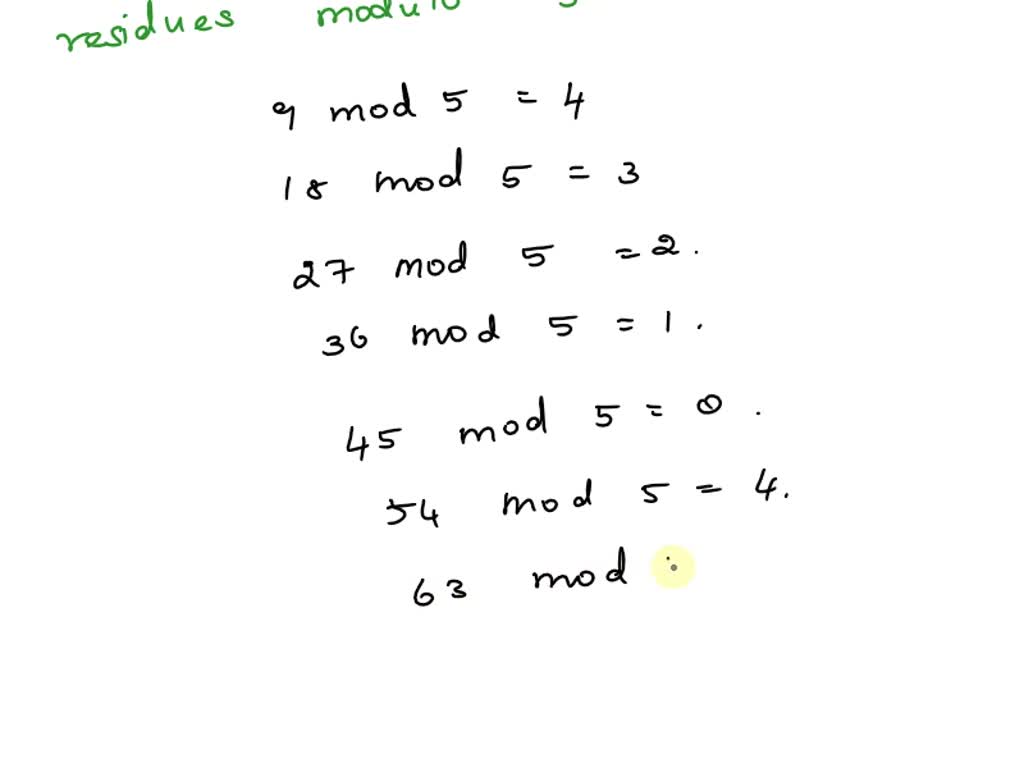 residues modulo
9 mod 5 = 4
18 mod 5 = 3
27 mod 5 = 2.
36 mod 5 = 1.
45 mod 5 = 0.
54 mod 5 = 4.
63 mod